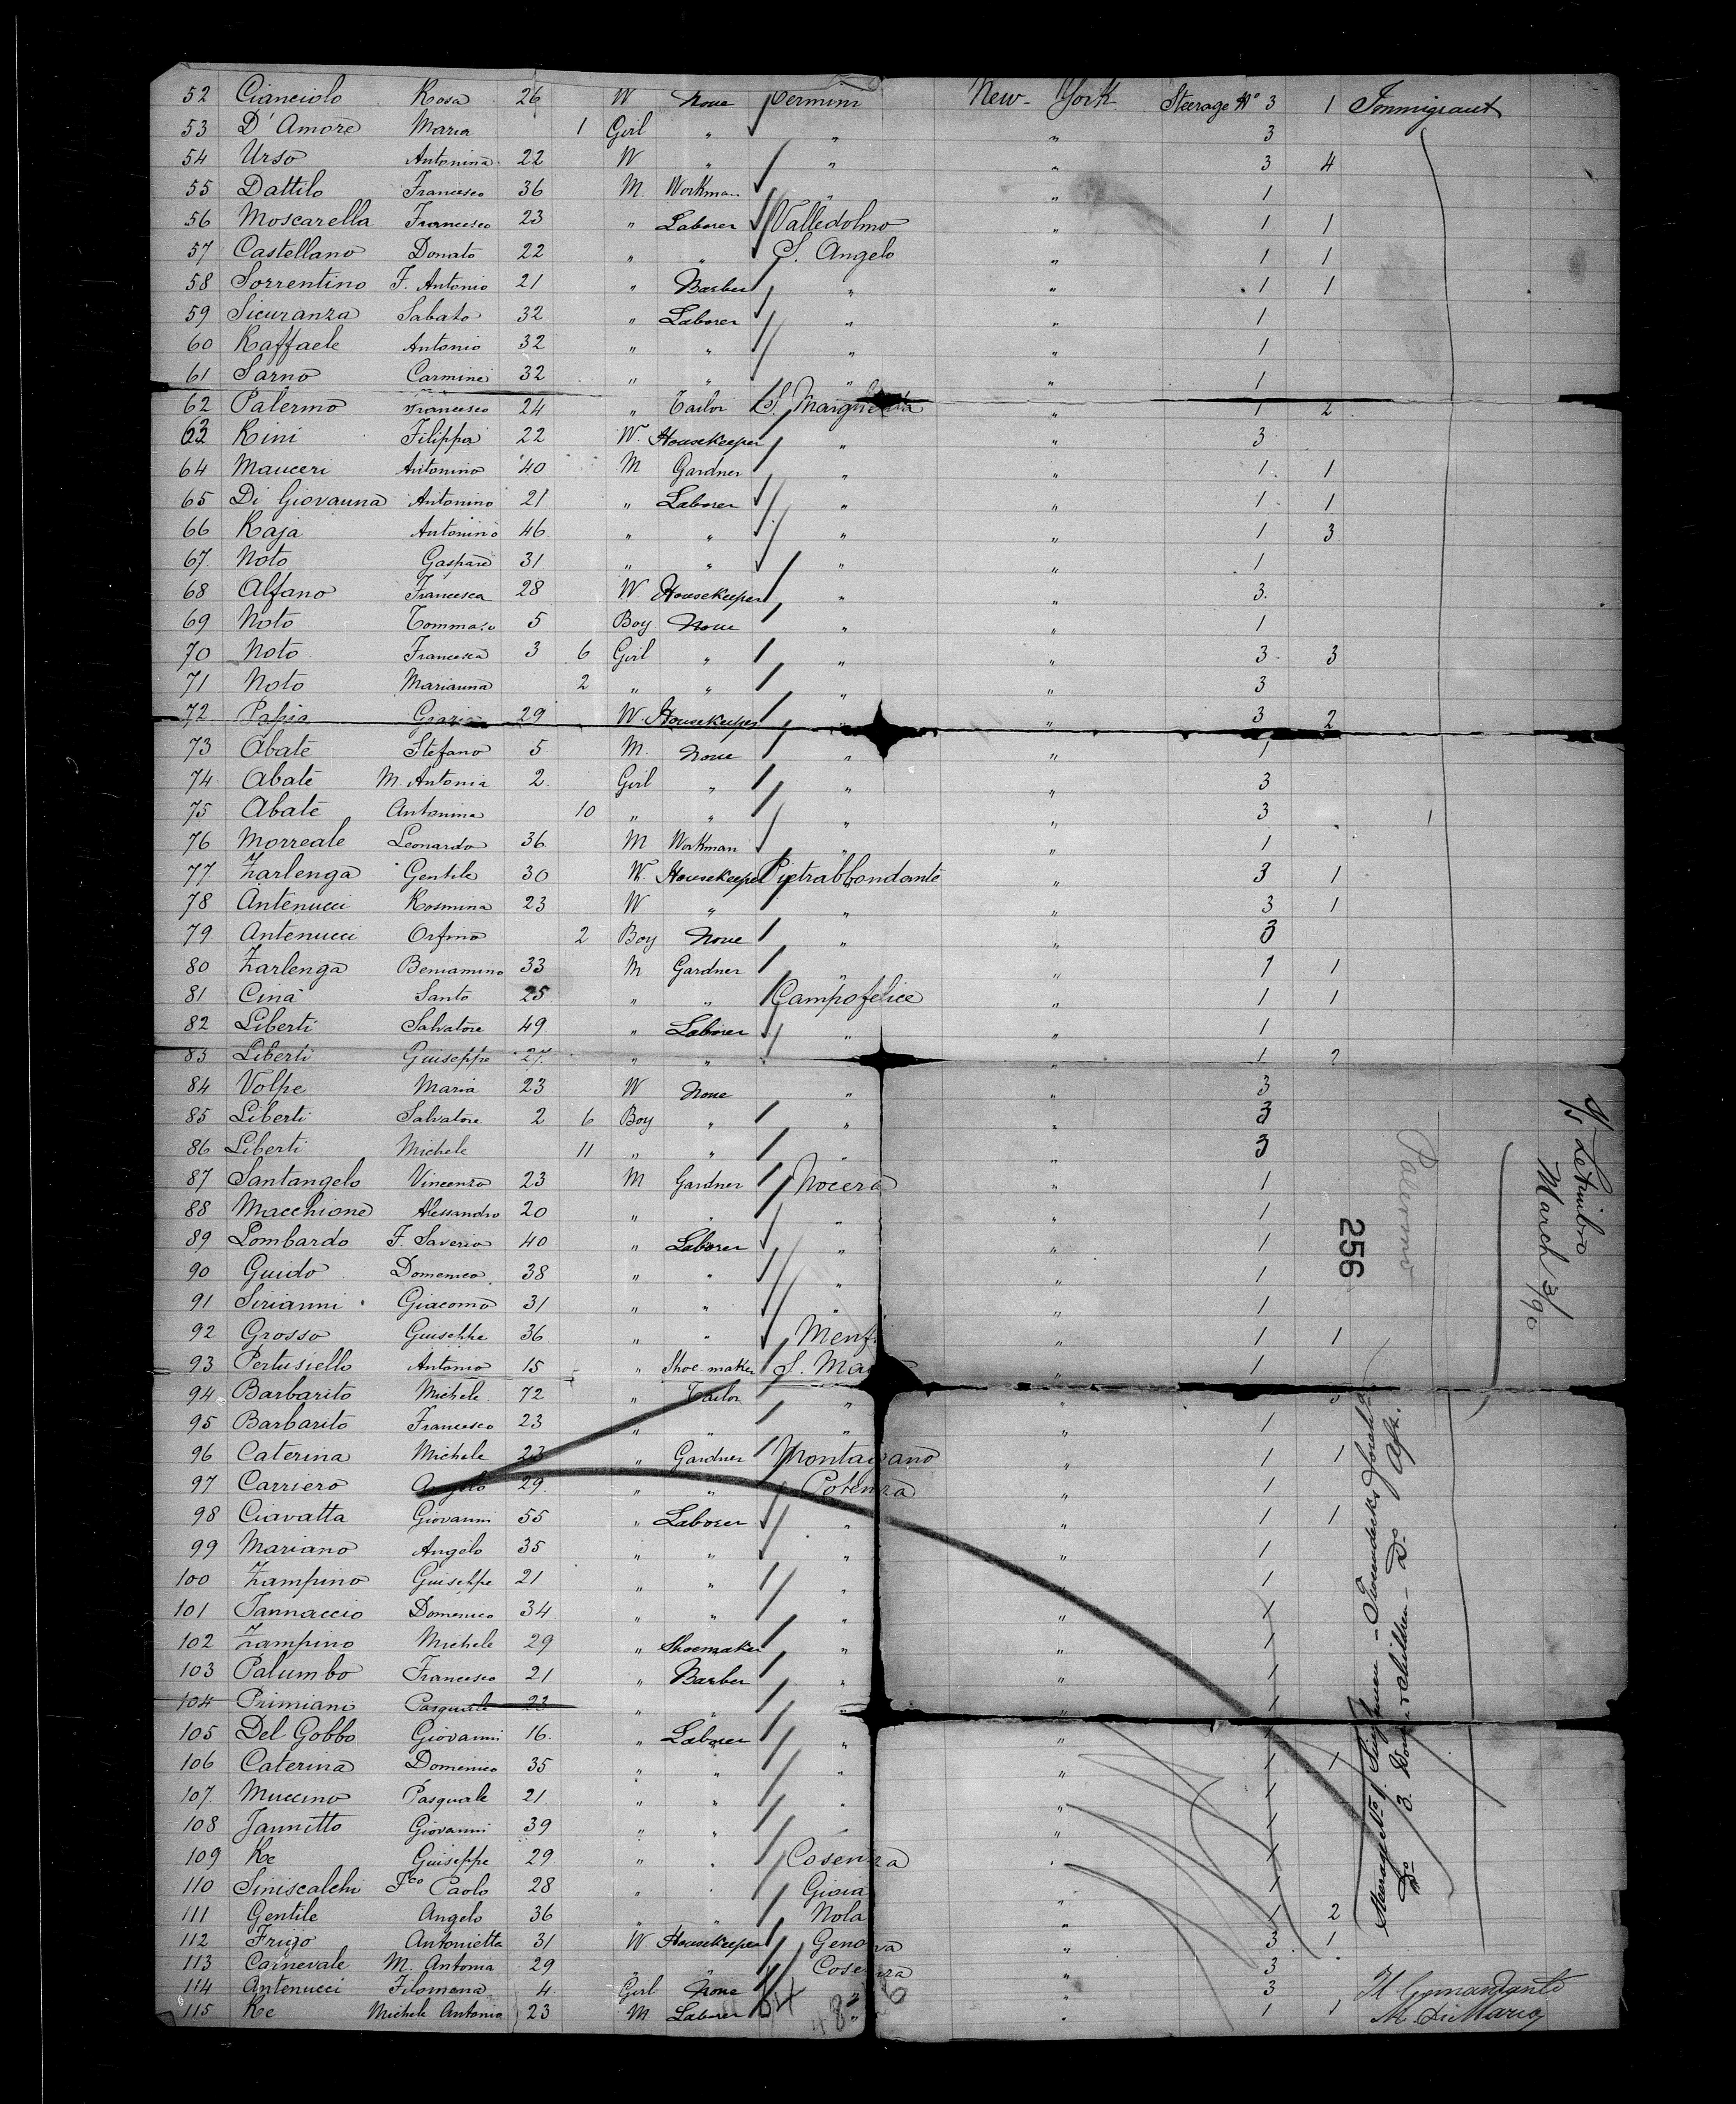 52 Cianciolo Rosa 26 W None Termini New-York Steerage No 3 1 Immigrant
53 D'Amore Maria 1 Girl " " " 3
54 Urso Antonina 22 W " " " 3 4
55 Dattilo Francesco 36 M. Workman " " 1
56 Moscarella Francesco 23 " Laborer Valledolmo " 1 1
57 Castellano Donato 22 " " S. Angelo " 1 1
58 Sorrentino F. Antonio 21 " Barber " " 1 1
59 Sicuranza Sabato 32 " Laborer " " 1
60 Raffaele Antonio 32 " " " " 1
61 Sarno Carmine 32 " " " " 1
62 Palermo Francesco 24 " Tailor S. Margherita " 1 2
63 Rini Filippa 22 W. Housekeeper " " 3
64 Mauceri Antonino 40 M Gardner " " 1 1
65 Di Giovanna Antonino 21 " Laborer " " 1 1
66 Raja Antonino 46 " " " " 1 3
67 Noto Gaspare 31 " " " " 1
68 Alfano Francesca 28 W Housekeeper " " 3.
69 Noto Tommaso 5 Boy None " " 1
70 Noto Francesca 3 6 Girl " " " 3 3
71 Noto Marianna 2 " " " " 3
72 Papia Grazia 29 W. Housekeeper " " 3 2
73 Abate Stefano 5 M. None " " 1
74 Abate M. Antonia 2 Girl " " " 3
75 Abate Antonina 10 " " " " 3
76 Morreale Leonardo 36 M Workman " " 1
77 Zarlenga Gentile 30 W. Housekeeper Pietrabbondante " 3 1
78 Antenucci Rosmina 23 W " " " 3 1
79 Antenucci Orfino 2 Boy None " " 3
80 Zarlenga Beniamino 33 M Gardner " " 1 1
81 Cinà Santo 25 " " Campofelice " 1 1
82 Liberti Salvatore 49 " Laborer " " 1
83 Liberti Guiseppe 27 " " " " 1 2
84 Volpe Maria 23 W None " " 3
85 Liberti Salvatore 2 6 Boy " " " 3
86 Liberti Michele 11 " " " " 3
87 Santangelo Vincenzo 23 M Gardner Nocera " 1
88 Macchione Alessandro 20 " " " " 1
89 Lombardo F. Saverio 40 " Laborer " " 1
90 Guido Domenico 38 " " " " 1
91 Sirianni Giacomo 31 " " " " 1
92 Grosso Guiseppe 36 " " Menfi " 1 1
93 Pertusiello Antonio 15 " Shoe-maker S. Ma " 1
94 Barbarito Michele 72 " Tailor " "
95 Barbarito Francesco 23 " " " " 1
96 Caterina Michele 23 " Gardner Montagano " 1 1
97 Carriero Angelo 29 " " Potenza " 1
98 Ciavatta Giovanni 55 " Laborer " " 1 1
99 Mariano Angelo 35 " " " " 1
100 Zampino Guiseppe 21 " " " " 1
101 Iannaccio Domenico 34 " " " " 1
102 Zampino Michele 29 " Shoemaker " " 1
103 Palumbo Francesco 21 " Barber " " 1
104 Primiani Pasquale 23 " " " " 1
105 Del Gobbo Giovanni 16 " Laborer " " 1
106 Caterina Domenico 35 " " " " 1 1
107 Muccino Pasquale 21 " " " " 1
108 Jannitto Giovanni 39 " " " " 1
109 Re Guiseppe 29 " " Cosenza " 1
110 Siniscalchi Fco Paolo 28 " " Gioia " 1
111 Gentile Angelo 36 " " Nola " 1 2
112 Frijo Antonietta 31 W Housekeeper Genova " 3 1
113 Carnevale M. Antonia 29 " " Cosenza " 3
114 Antenucci Filomena 4 Girl None " " 3 Il Comandante
115 Re Michele Antonio 23 M Laborer " " 1 1 M. Di Mario
S/S Letimbro
March 13/90
Palermo
256
Steerage No 1. Singlemen - Tweendecks forward
Do 3. Women & children - Do Aft.